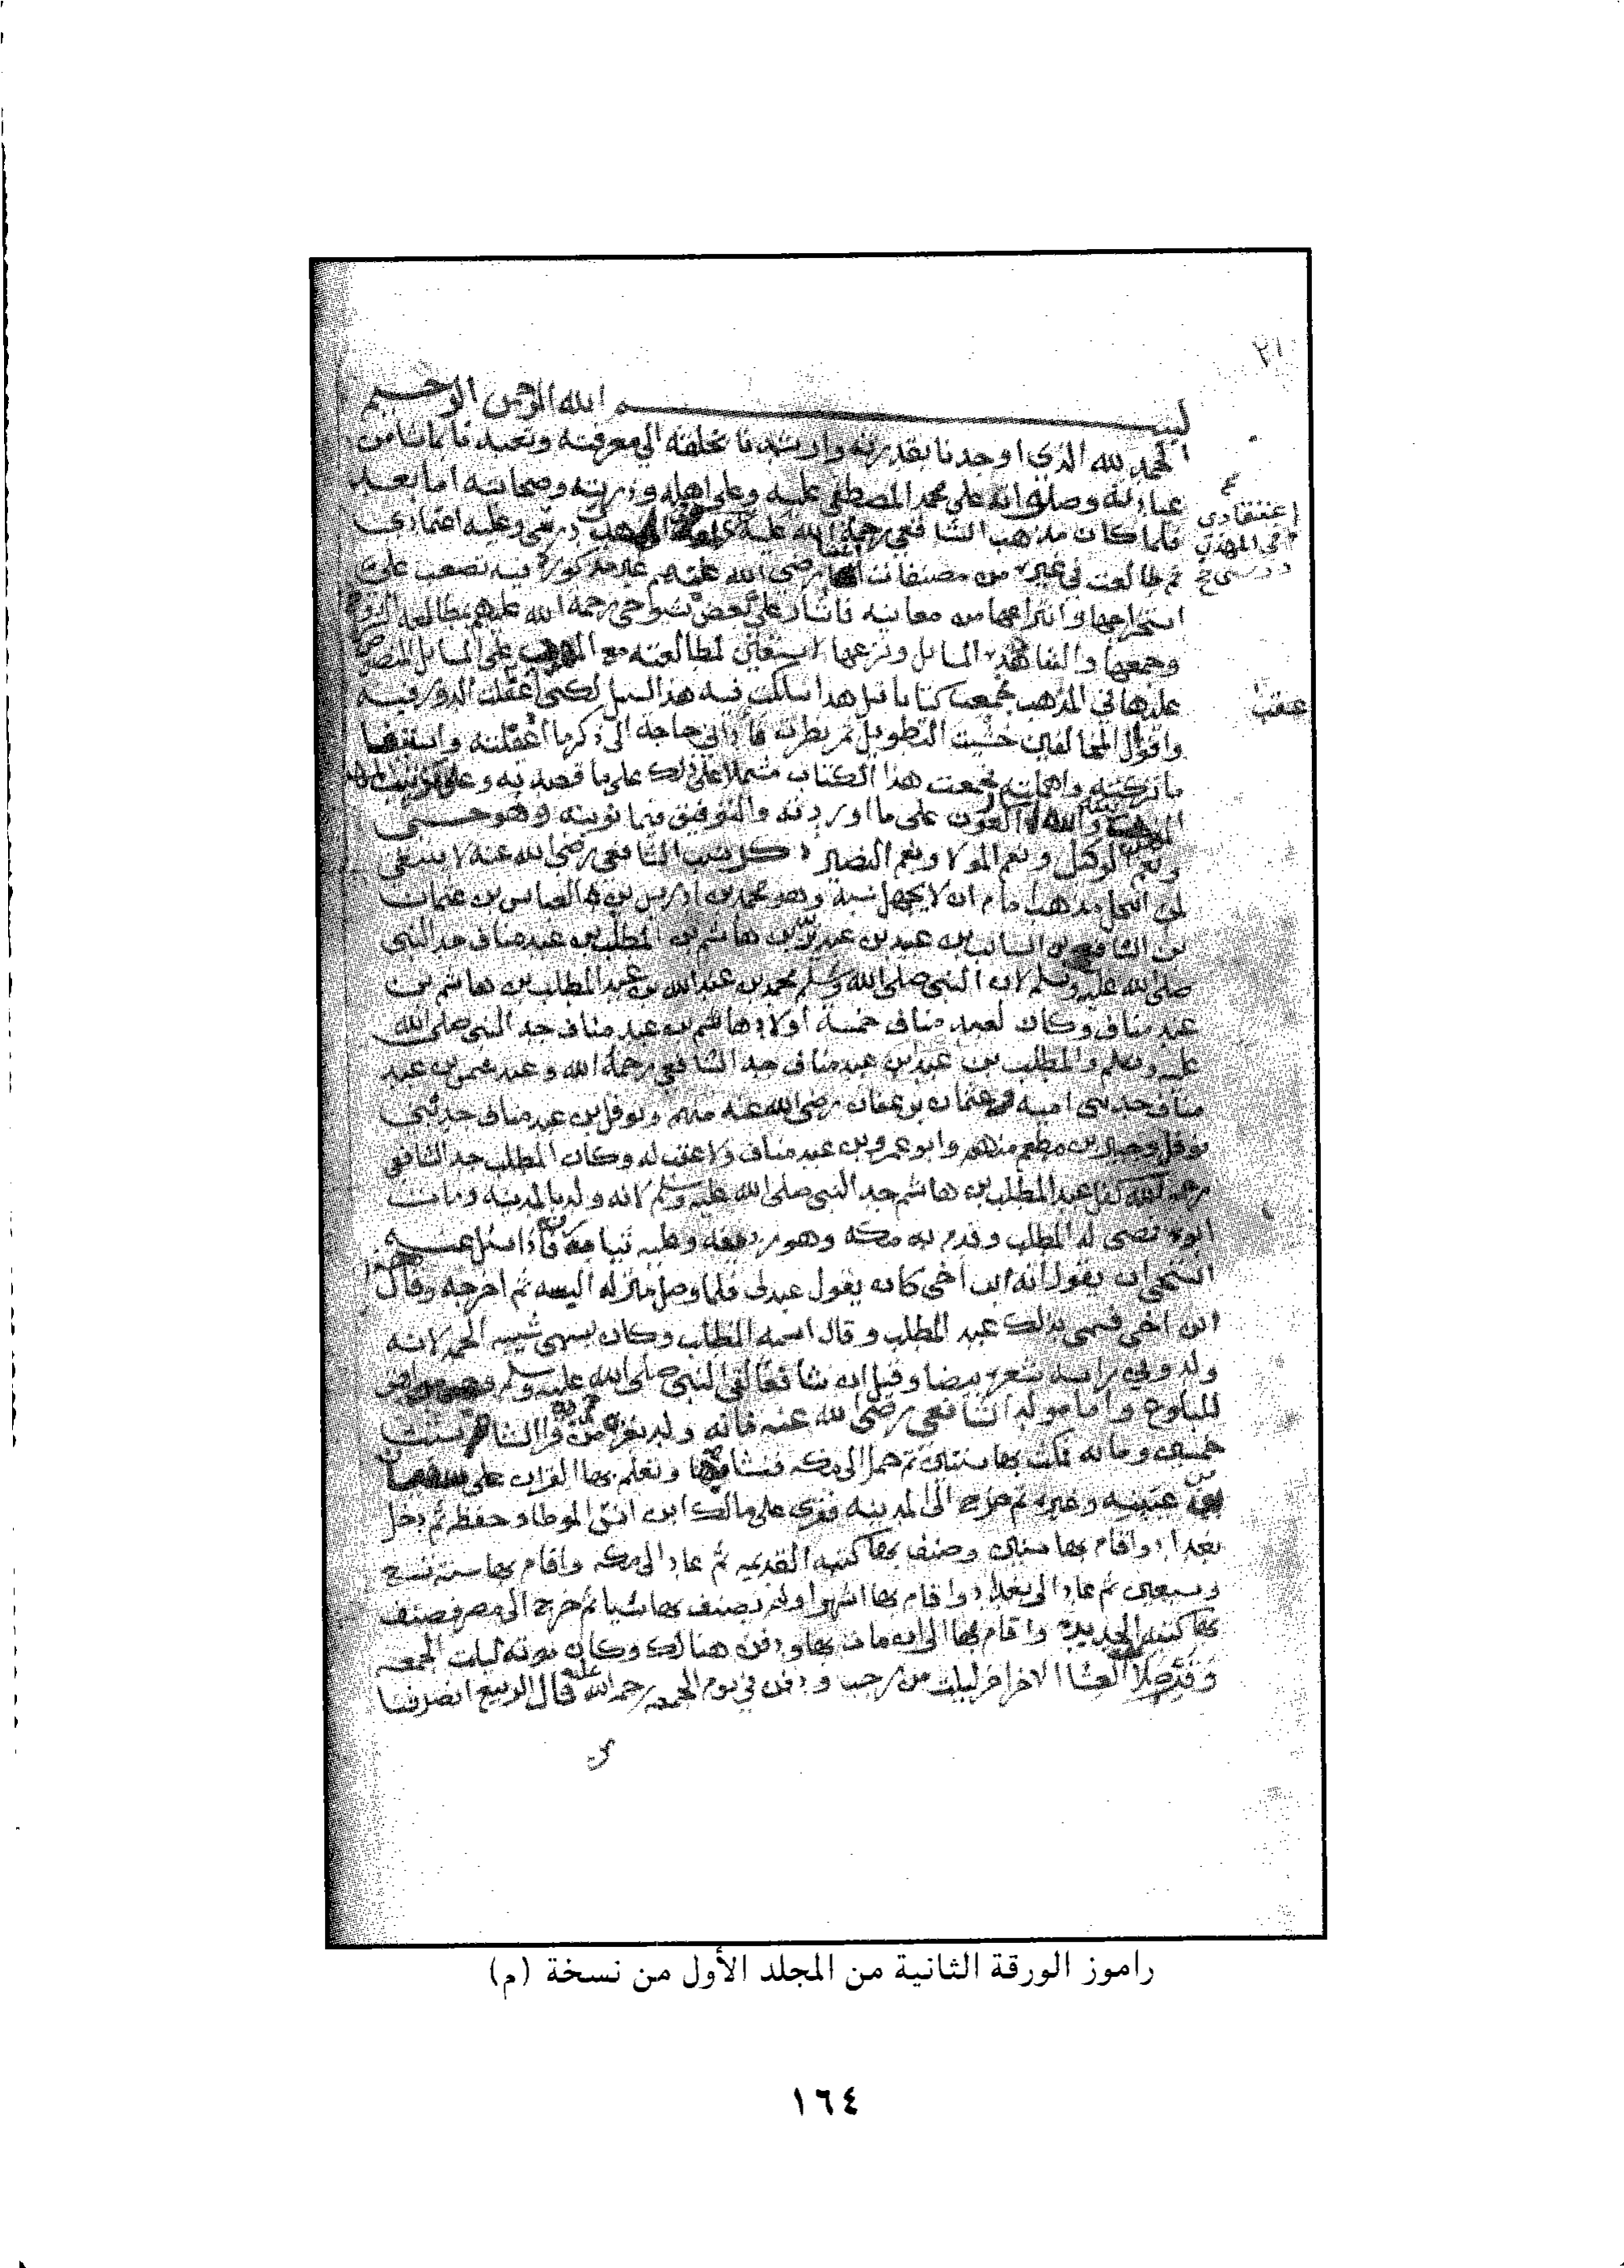 ٢١
بسم الله الرحمن الرحيم
الحمد لله الذي اوجدنا بقدرته وارشدنا بخلقه الى معرفته وتعبدنا بما شا من
عبادته وصلواته على محمد المصطفى عليه وعلى اهله وذريته وصحابته اما بعد
فلما كان مذهب الشافعي رحمة الله عليه درسي وعليه اعتمادي
اعتقادي
وفي المهذب
درسي
ثم طالعت في غيره من مصنفات رضي الله عنهم غير مذكورة فيه تصعب على
استخراجها وانتزاعها من معانيه فاشار علي بعض شيوخي رحمة الله عليهم بمطالعة
وجمعها والتقاط هذه المسايل ونزعها لاستعين لمطالعته مع المهذب على المسايل
عليها في المذهب فجمعت كتابا قبل هذا سلكت فيه هذا السبيل لكني اغفلت الدور فيه
عقب
واقوال المخالفين خشيت التطويل ثم نظرت فاذا بي حاجة الى ذكر ما اغفلته
ما تركته واهملته فجمعت هذا الكتاب مشتملا على ذلك على ما قصد به وعلى ترتيب
العون على ما اوردته والتوفيق فيما نويته وهو حسبي
ونعم الوكيل ونعم المولا ونعم النصير ذكر نسب الشافعي رضي الله عنه لا ينبغي
لمن انتحل مذهب امام ان لا يجهل نسبه وهو محمد بن ادريس بن العباس بن عثمان
بن الشافع بن السائب بن عبيد بن عبد يزيد بن هاشم بن المطلب بن عبد مناف جد النبي
صلى الله عليه وسلم لان النبي صلى الله وسلم محمد بن عبد الله بن عبد المطلب بن هاشم بن
عبد مناف وكان لعبد مناف خمسة اولاد هاشم بن عبد مناف جد النبي صلى الله
عليه وسلم والمطلب بن عبد مناف جد الشافعي رحمة الله وعبد شمس بن عبد
مناف جد بني امية عثمان بن عفان رضي الله عنه منهم ونوفل بن عبد مناف جد بني
نوفل وجبير بن مطعم منهم وابو عمرو بن عبد مناف ولا عقب له وكان المطلب جد الشافعي
رحمه الله كفل عبد المطلب بن هاشم جد النبي صلى الله عليه وسلم لانه ولد بالمدينة ومات
ابوه فمضى له المطلب وقدم به مكة وهو رديفه وعليه ثياب فاذا سئل عنه
استحى ان يقول انه ابن اخي كان يقول عبدي فلما وصل منزله البسه ثم اخرجه وقال
ابن اخي فسمي بذلك عبد المطلب وقال اسمه المطلب وكان يسمى شيبه الحمد لانه
ولد وفي راسه شعره بيضا وقيل ان شافعا لقي النبي صلى الله عليه وسلم
للبلوغ واما مولد الشافعي رضي الله عنه فانه ولد بغزه من قرا الشام سنت
خمسين وماته فمكث بها سنتين ثم حمل الى مكه فنشا بها وتعلم بها القران على
بن عيينه وغيره ثم خرج الى المدينه فقرى على مالك ابن انس الموطا وحفظه ثم دخل
بغداد واقام بها سنتين وصنف بها كتبه القديمه ثم عاد الى مكه واقام بها سنة تسع
وتسعين ثم عاد الى بغداد واقام بها اشهرا ولم يصنف بها شيا ثم خرج الى مصر فصنف
بها كتبه الجديدة واقام بها الى ان مات بها ودفن هنالك وكان موته ليلت الجمعه
وقد صلا العشا الاخر اخر ليلت من رجب ودفن في يوم الجمعه رحمه الله عليه قال الربيع انصرفنا
راموز الورقة الثانية من المجلد الأول من نسخة (م)
١٦٤